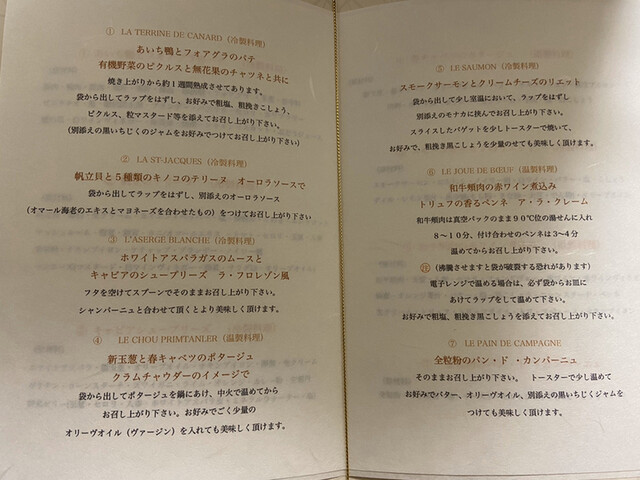 ① LA TERRINE DE CANARD（冷製料理）
あいち鴨とフォアグラのパテ
有機野菜のピクルスと無花果のチャツネと共に
焼き上がりから約１週間熟成させてあります、
袋から出してラップをはずし、お好みで粗塩、粗挽きこしょう、
ピクルス、粒マスタード等を添えてお召し上がり下さい。
（別添えの黒いちじくのジャムをお好みでつけてお召し上がり下さい）
② LA ST-JACQUES（冷製料理）
帆立貝と５種類のキノコのテリーヌ オーロラソースで
袋から出してラップをはずし、別添えのオーロラソース
（オマール海老のエキスとマヨネーズを合わせたもの）をつけてお召し上がり下さい
③ L'ASERGE BLANCHE（冷製料理）
ホワイトアスパラガスのムースと
キャビアのシューブリーズ ラ・フロレゾン風
フタを空けてスプーンでそのままお召し上がり下さい。
シャンパーニュと合わせて頂くとより美味しく頂けます。
④ LE CHOU PRIMTANLER（温製料理）
新玉葱と春キャベツのポタージュ
クラムチャウダーのイメージで
袋から出してポタージュを鍋にあけ、中火で温めてから
お召し上がり下さい。お好みでごく少量の
オリーヴオイル（ヴァージン）を入れても美味しく頂けます。
⑤ LE SAUMON（冷製料理）
スモークサーモンとクリームチーズのリエット
袋から出して少し室温において、ラップをはずし
別添えのモナカに挟んでお召し上がり下さい。
スライスしたバゲットを少しトースターで焼いて、
お好みで、粗挽き黒こしょうを少量のせても美味しく頂けます。
⑥ LE JOUE DE BŒUF（温製料理）
和牛頬肉の赤ワイン煮込み
トリュフの香るペンネ ア・ラ・クレーム
和牛頬肉は真空パックのまま９０℃位の湯せんに入れ
８〜１０分、付け合わせのペンネは３〜４分
温めてからお召し上がり下さい。
㊟（沸騰させますと袋が破裂する恐れがあります）
電子レンジで温める場合は、必ず袋からお皿に
あけてラップをして温めて下さい。
お好みで粗塩、粗挽き黒こしょうを添えてお召し上がり下さい。
⑦ LE PAIN DE CAMPAGNE
全粒粉のパン・ド ・カンパーニュ
そのままお召し上がり下さい。 トースターで少し温めて
お好みでバター、オリーヴオイル、別添えの黒いちじくジャムを
つけても美味しく頂けます。